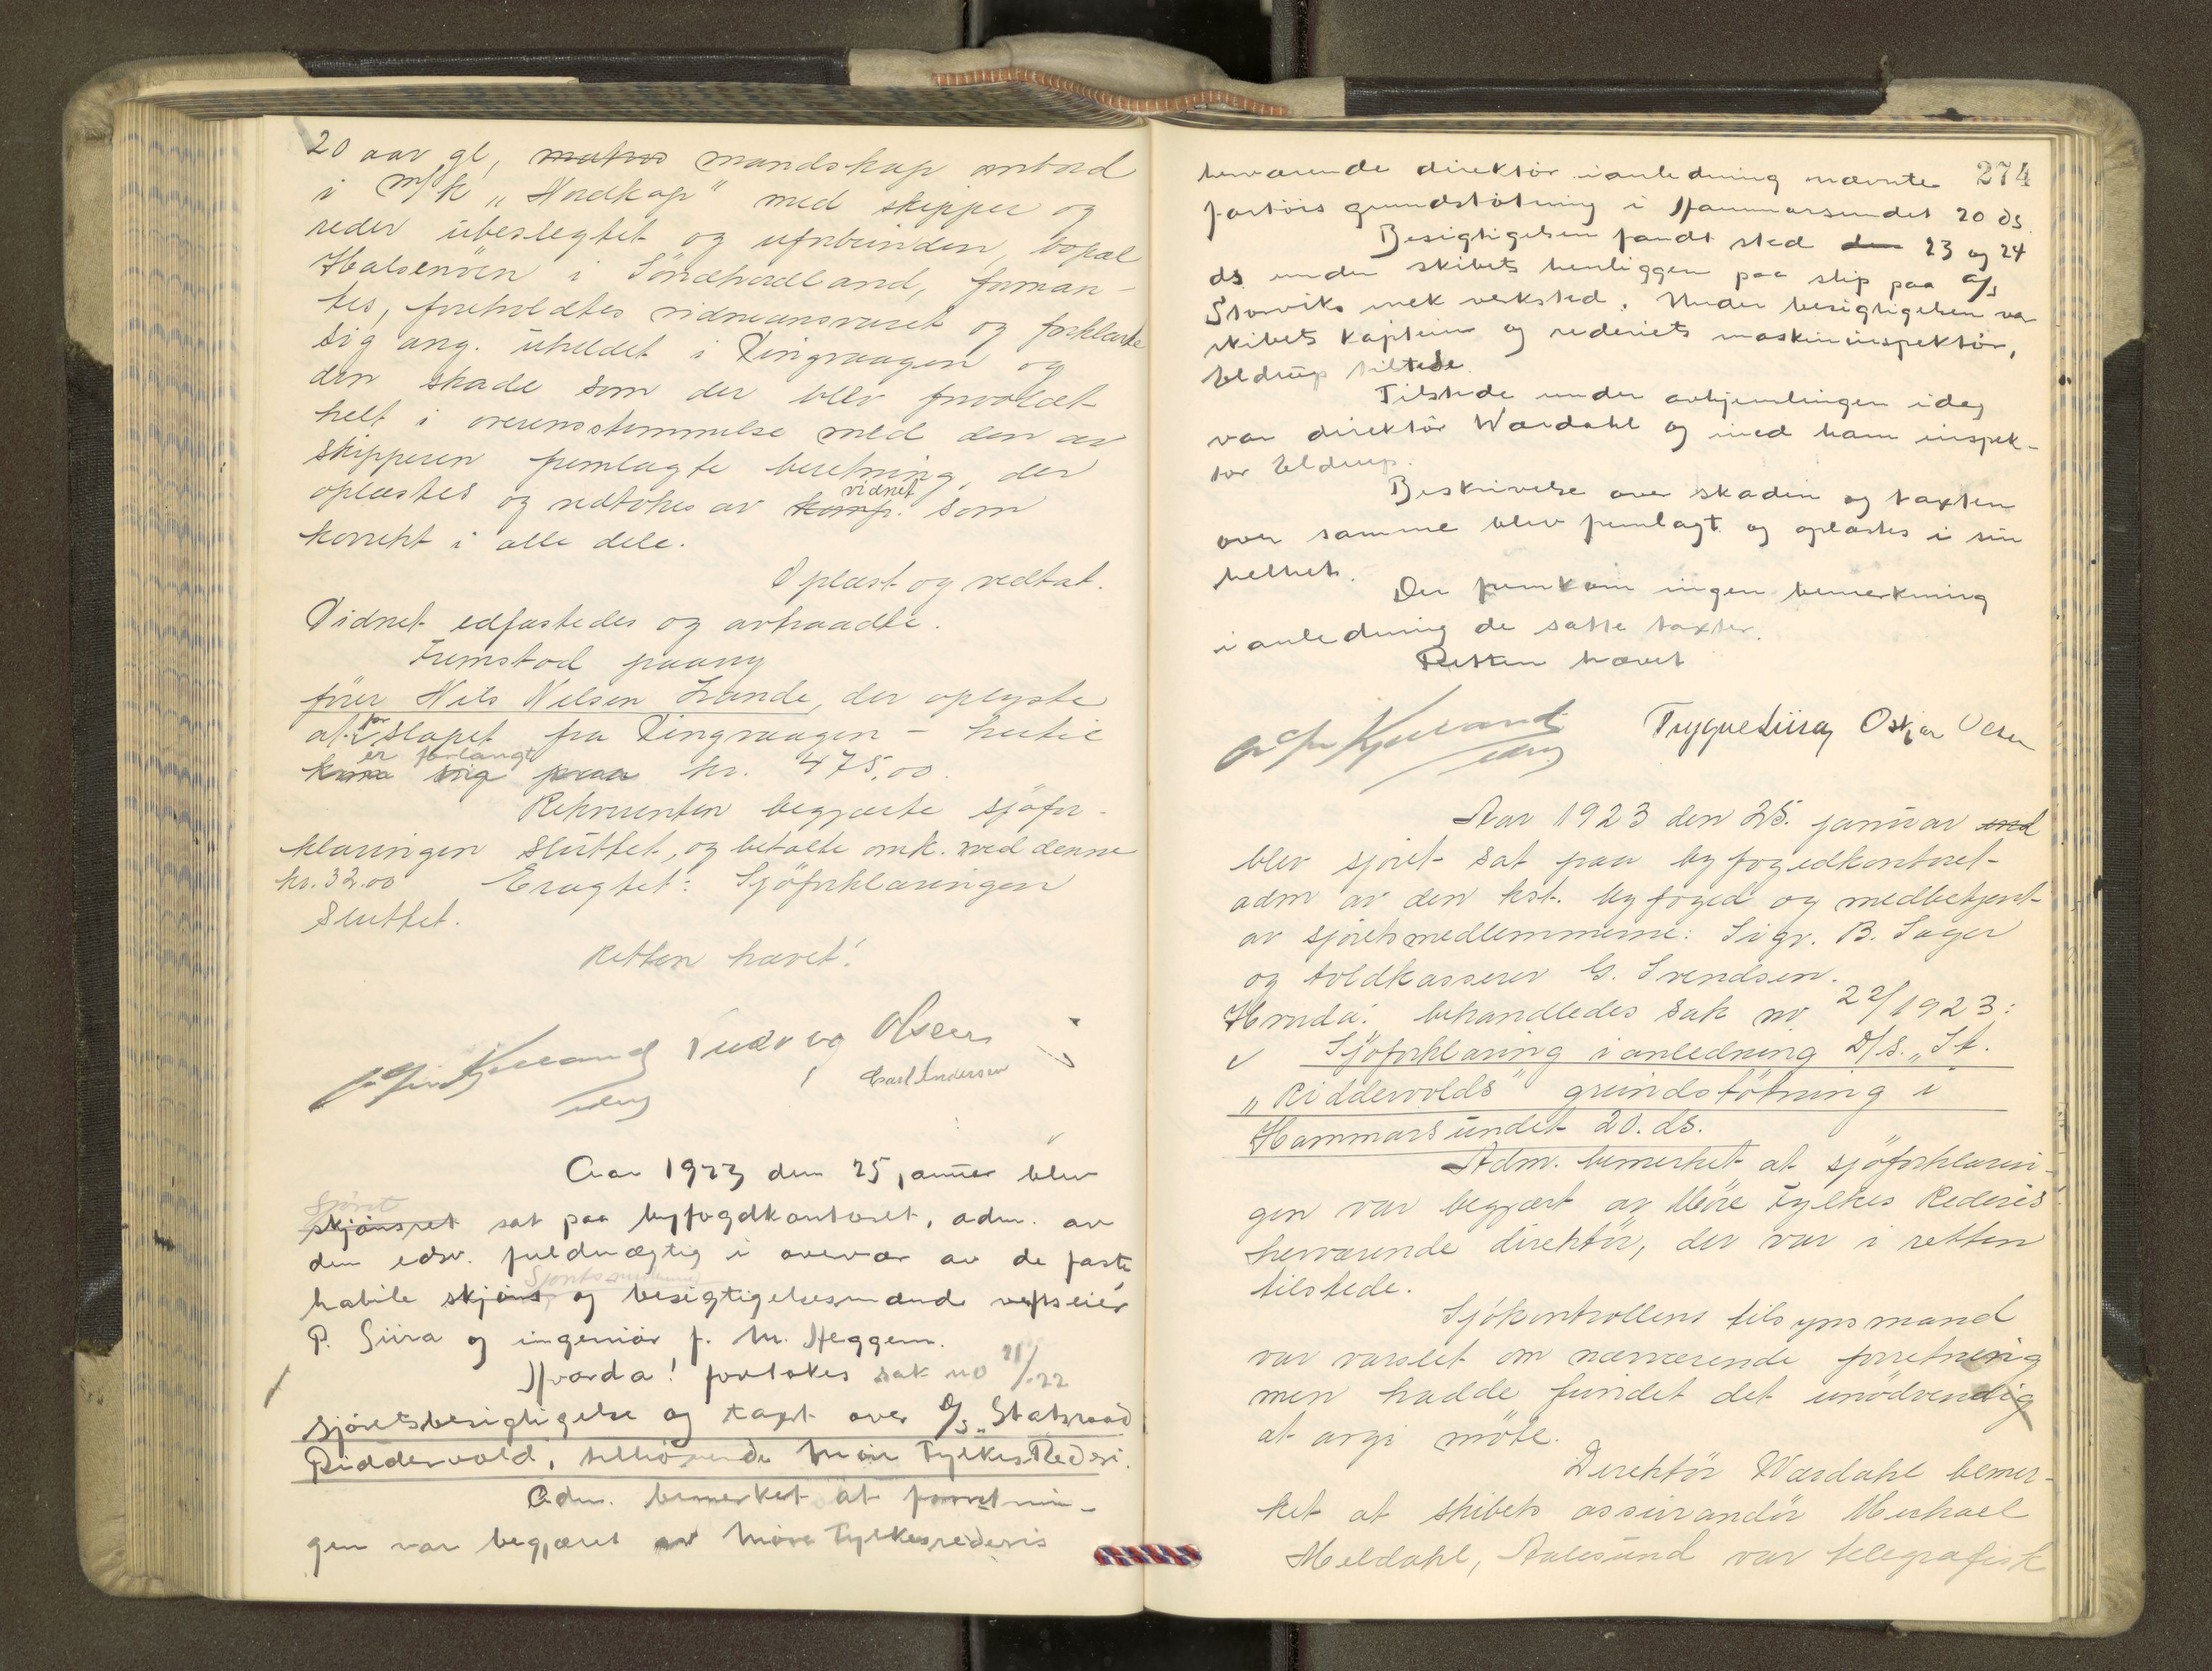 20 aar gl, matros mandskap ombord
i m/k „Nordkap" med skipper og
reder ubeslegtet og uforbunden, bopæl
Halsenöen i Söndhordland, forman-
tes, foreholdtes vidneansvaret og forklarte
sig ang. uheldet i Vingvaagen og
den skade som der blev forvoldet
helt i overensstemmelse med den av
skipperen fremlagte beretning, der
vidnet
oplæstes og vedtokes av komp. som
korrekt i alle dele.
Oplæst og vedtat.
Vidnet edfæstedes og avtraadte.
Fremstod paany
förer Nils Nilsen Lande, der oplyste
at for slæpet fra Vingvaagen - hertil
er forlangt
kom sig paa kr. 475,00.
Rekvirenten begjærte sjöfor-
klaringen sluttet, og betalte omk. med denne
kr. 32.00 Eragtet: Sjöforklaringen
sluttet.
Retten hævet!
Ludvig Olsen
Carl Andersen
Aar 1923 den 25 januar blev
Sjöret
skjönsret sat paa byfogdkontoret, adm. av
den edsv. fuldmægtig i overvær av de faste
habile skjöns og besigtigelsesmænd verfseier
P. Siira og ingeniör J. M. Heggem.
Hvorda! foretokes sak no 21/22
Sjöretsbesigtigelse og taxt over D/S „Statsraad
Riddervold", tilhörende Möre Fylkes Rederi.
Adm. bemerket at forretnin-
gen var begjæret av Möre Fylkesrederis
274
herværende direktör i anledning nævnte
fartöis grundstötning i Hammarsundet 20 ds.
Besigtigelsen fandt sted den 23 og 24
ds. under skibets henliggen paa slip paa A/S
Storviks mek verksted. Under besigtigelsen var
skibets kaptein og rederiets maskininspektör,
Eldrup tilstede.
Tilstede under avhjemlingen idag
var direktör Wærdahl og med ham inspek-
tör Eldrup.
Beskrivelse over skaden og taxten
over samme blev fremlagt og oplæstes i sin
helhet.
Der fremkom ingen bemerkning
i anledning de satte taxter.
Retten hævet
Trygve Siira Oskar Olsen
Aar 1923 den 25. januar ord
blev sjöret sat paa byfogedkontoret
adm av den kst. byfoged og medbetjent
av sjöretsmedlemmerne: Sigv. B. Sager
og toldkasserer G. Svendsen.
Hvorda: behandledes sak no 22/1923:
Sjöforklaring i anledning D/S. „St.
„Riddervolds" grundstötning i
Hammarsundet 20. ds.
Adm. bemerket at sjöforklarin-
gen var begjært av Möre Fylkes Rederis
herværende direktör, der var i retten
tilstede.
Sjökontrollens tilsynsmand
var varslet om nærværende forretning
men hadde fundet det unödvendig
at avgi möte.
Direktör Wærdahl bemer-
ket at skibets assurandör Michael
Meldahl, Aalesund var telegrafisk